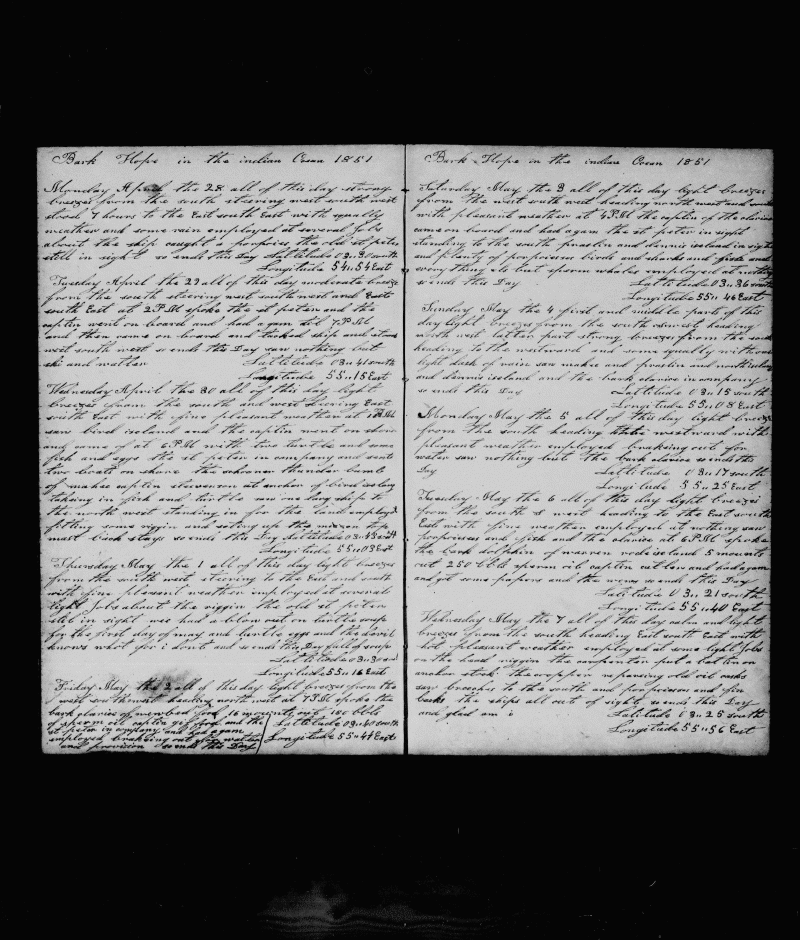 Bark Hope in the indian Ocean 1851
Monday April the 28 all of this day strong
breezes from the south steering west south west
stood 7 hours to the East south East with squally
weather and some rain employed at several Jobs
about the ship caught a porpoise the old st peter
still in sight so ends this Day Lattitude 03 " 30 south
Longitude 54 " 54 East
Tuesday April the 29 all of this day moderate breeze
from the south steering west south west and East
south East at 2 P.M spoke the st peter and the
captin went on board and had a gam till 7 P.M
and then come on board and tacked ship and stood
west south west so ends this Day saw nothing but
ski and watter Lattitude 03 " 41 south
Longitude 55 " 15 East
Wednesday April the 30 all of this day light
breezes from the south and west steering East
south East with fine pleasant weather at P.M
saw bird iceland and the captin went on shore
and came of at 6 P.M with two turtle and some
fish and eggs the st peter in company and sent
two boats on shore the schoner
of mahee captin stevenson at anchor of bird iceland
taking in fish and turtle saw one large ship to
the north west standing in for the land employd
fitting some riggin and seting up the mizzen top
mast back stays so ends this Day Lattitude 03 " 43 south
Longitude 55 " 03 East
Thursday May the 1 all of this day light breezes
from the south west steering to the East and south
with fine pleasent weather employed at several
light Jobs about the riggin the old st peter
still in sight wee had a blow out on turtle soup
for the first day of may and turtle eggs and the devil
knows what for i dont and so ends this Day full of soup
Lattitude 03 " 30 south
Longitude 55 " 16 East
Friday May the 2 all of this day light breezes from the
west southwest heading north west at 7 P.M spoke the
bark clarice of new bed ford 16 months out 180 bbls
of sperm oil captin and the Lattitude 03 " 40 south
st peter in company and had a gam
employed breaking out for watter Longitude 55 " 44 East
and provision so ends this Day
Bark Hope in the indian Ocean 1851
Saturday May the 3 all of this day light breezes
from the west south west heading north west and south
with pleasant weather at 4 P.M the captin of the clarice
came on board and had a gam the st peter in sight
standing to the south praslin and dennis iceland in sight
and plenty of porpoises birds and sharks and fish and
every thing els but sperm whales employed at nothing
so ends this Day Lattitude 03 " 36 south
Longitude 55 " 46 East
Sunday May the 4 first and middle part of this
day light breezes from the south heading
north west latter part strong breezes from the south
heading to the westward and some squally without
light deck of rain saw mahee and praslin and north iceland
and dennis iceland and the bark clarice in company
so ends this Day Lattitude 03 " 15 south
Longitude 55 " 08 East
Monday May the 5 all of this day light breezes
from the south heading to the westward with
pleasant weather employed breaking out for
watter saw nothing but the bark clarice so ends this
Day Lattitude 03 " 17 south
Longitude 55 " 25 East
Tuesday May the 6 all of this day light breezes
from the south & west heading to the East south
East with fine weather employed at nothing saw
porpoises and fish and the clarice at 6 P.M spoke
the bark dolphin of warren rode iceland 5 months
out 250 bbls sperm oil captin and had a gam
and got some papers and the news so ends this Day
Lattitude 03 " 21 south
Longitude 55 " 40 East
Wednesday May the 7 all of this day calm and light
breezes from the south heading East south East with
hot pleasant weather employed at some light Jobs
on the head riggin the carpenter put a bolt in an
anchor stock the cooper repairing old oil casks
saw breeches to the south and porpoises and fin
backs the ships all out of sight so ends this Day
and glad am i Lattitude 03 " 25 south
Longitude 55 " 56 East